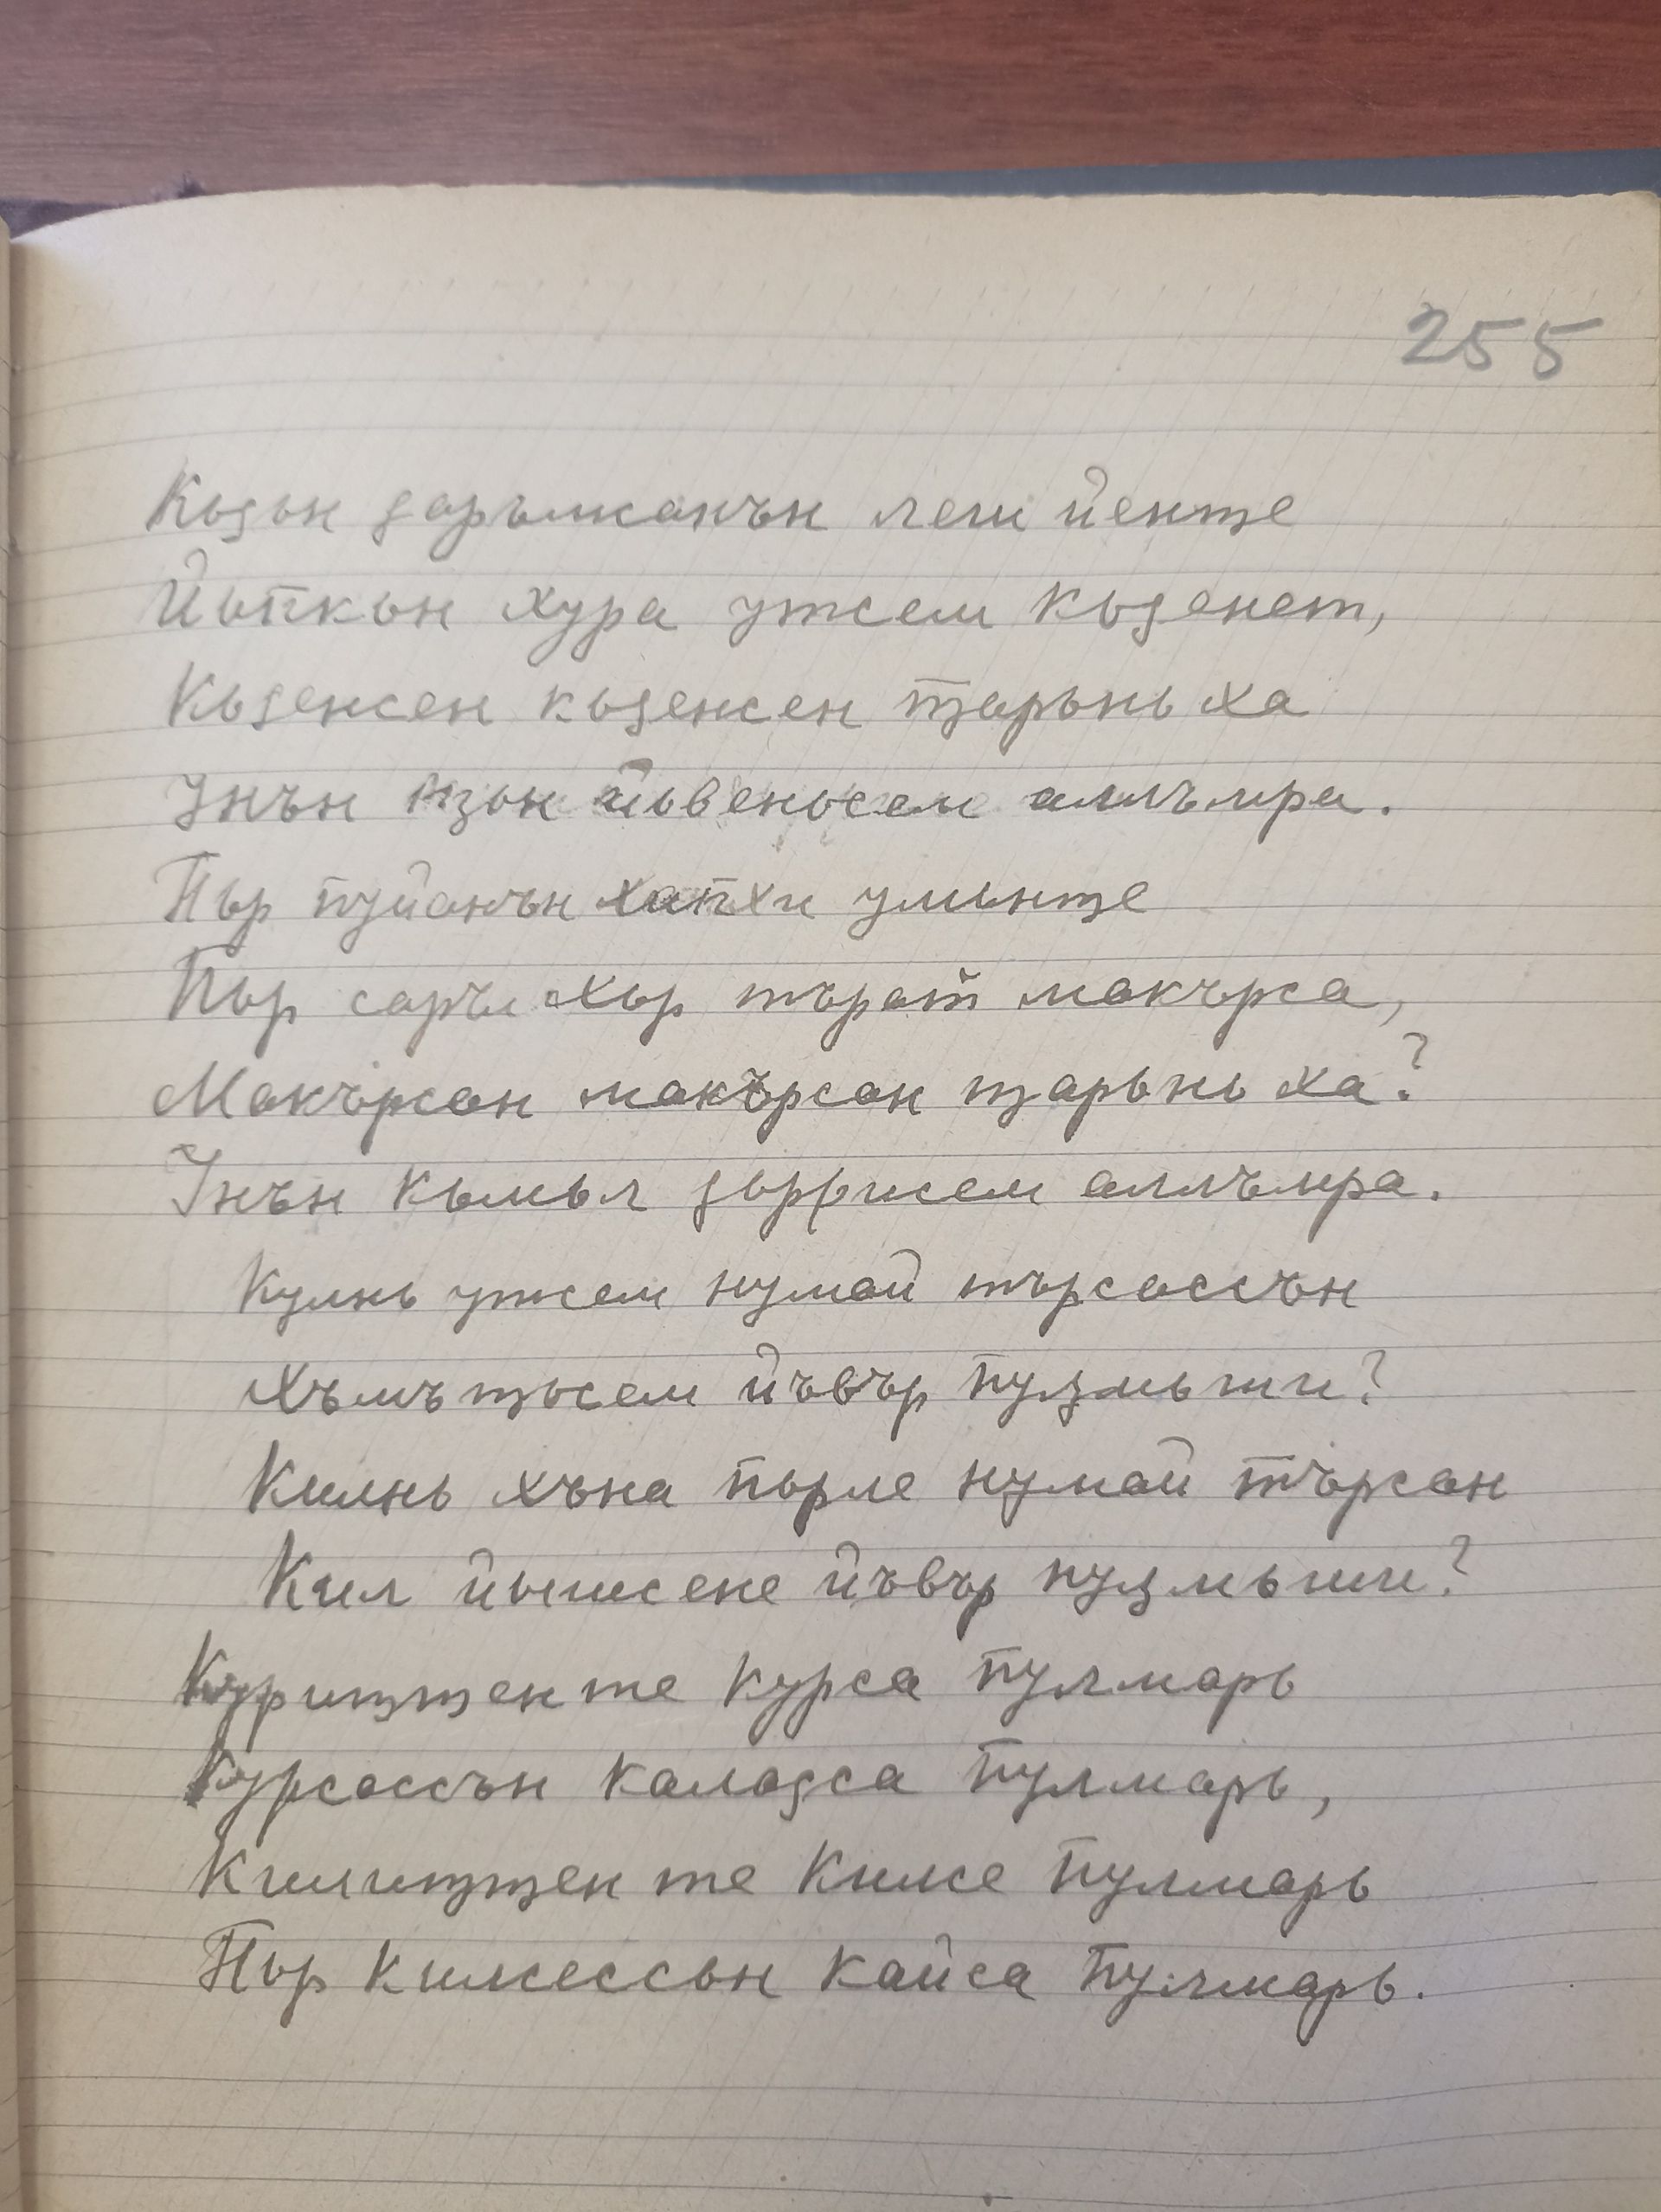 255
Кьҙьн ҙарълканън леш йенҗе
Йьпкьн хура утсем кьҙенет,
Кьҙенсен кьҙенсен ҭарьнь ха
Унън нҙьн йьвеньсем аллъмра.
Пьр пуйанън хапхи умьнҗе
Пьр саръ хьр търат макърса,
Макърсан макърсан ҭарьнь ха?
Унън кьмьл ҙьррисем аллъмра.
Кулнь утсем нумай търсассън
Хъмътьсем йъвър пулмьши?
Килнь хъна пьрле нумай търсан
Кил йышсене йъвър пулмьши?
Куриттен те курса пулмарь
Курсассън калаҙса пулмарь,
Килиттен те килсе пулмарь
Пьр килсессьн кайса пулмарь.